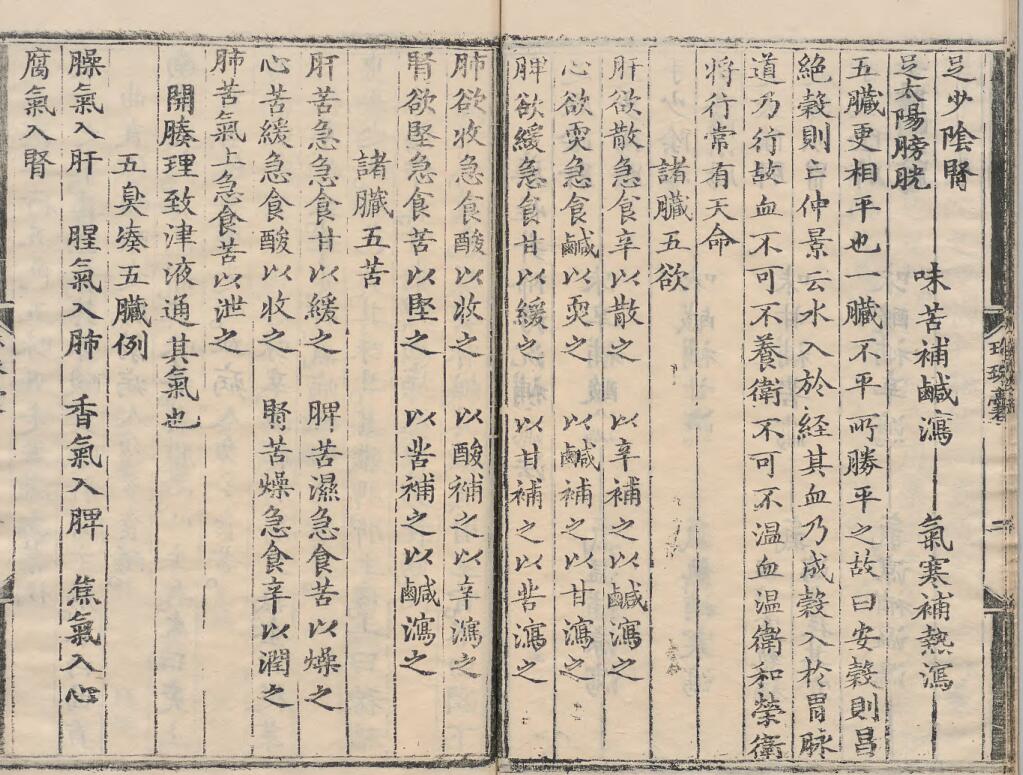 足少陰腎
味苦補鹹瀉 氣寒補熱瀉
足太陽膀胱
五臟更相平也一臟不平所勝平之故曰安穀則昌
絶穀則亡仲景云水入於經其血乃成穀入於胃脉
道乃行故血不可不養衛不可不温血温衛和榮衛
将行常有天命
諸臟五欲
肝欲散急食辛以散之 以辛補之以鹹瀉之
心欲耎急食鹹以耎之 以鹹補之以甘瀉之
脾欲緩急食甘以緩之 以甘補之以苦瀉之
珍珠囊 二
肺欲收急食酸以收之 以酸補之以辛瀉之
腎欲堅急食苦以堅之 以苦補之以鹹瀉之
諸臟五苦
肝苦急急食甘以緩之 脾苦濕急食苦以燥之
心苦緩急食酸以收之 腎苦燥急食辛以潤之
肺苦氣上急食苦以泄之
開腠理致津液通其氣也
五臭凑五臟例
臊氣入肝 腥氣入肺 香氣入脾 焦氣入心
腐氣入腎